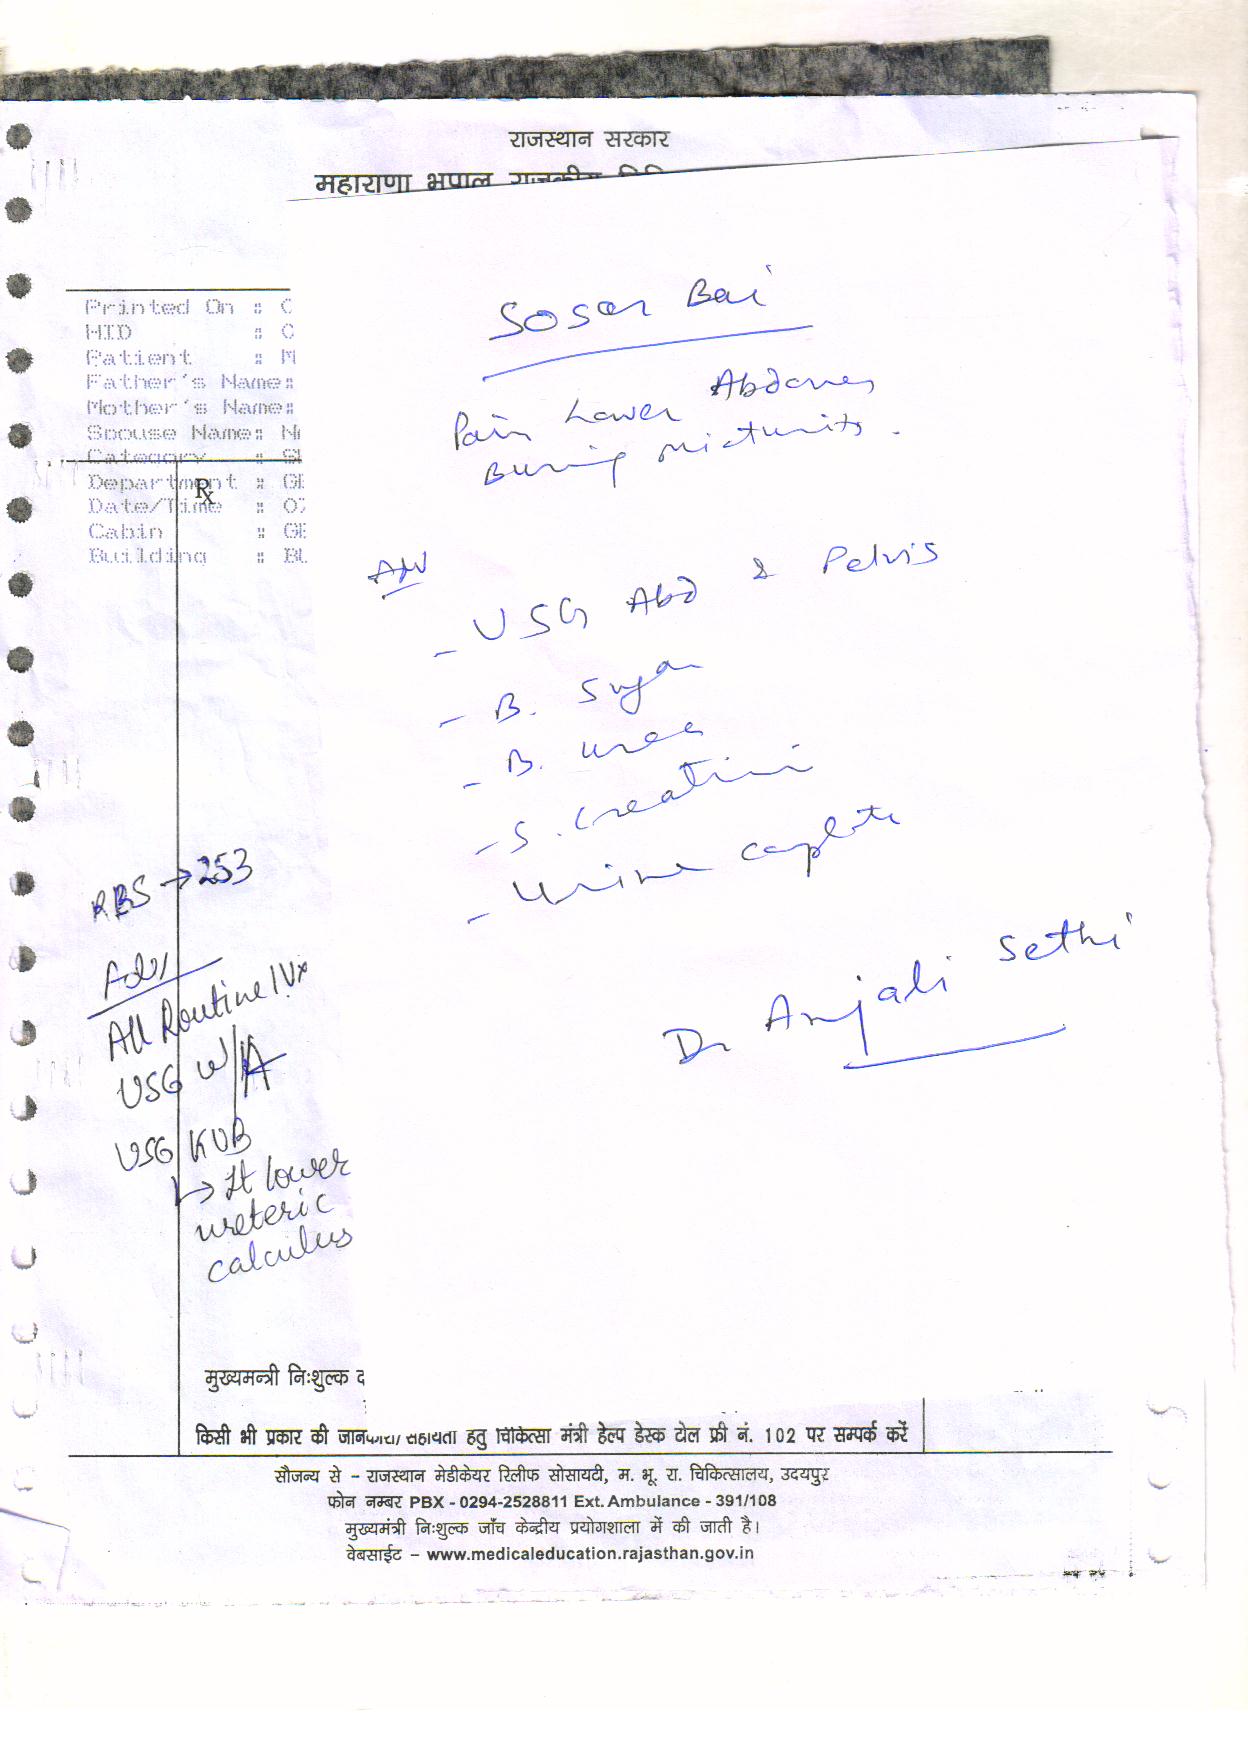 राजस्थान सरकार
महाराणा भूपाल राजकीय
Printed On : C
HID : C
Patient : M
Father's Name:
Mother's Name:
Spouse Name: N
Category :
Department : GE
Date/Time : 07
Cabin : GE
Building : BU
Rx
Sosar Bai
Pain Lower Abdomen
Burning micturits.
Adv
- USG Abd & Pelvis
- B. Sugar
- B. urea
- S. Creatini
- Urine complete
Dr Anjali Sethi
RBS → 253
Adv
All Routine IVx
USG W/A
USG KUB
→ lt lower
ureteric
calculus
मुख्यमन्त्री निःशुल्क द
किसी भी प्रकार की जानकारी/सहायता हेतु चिकित्सा मंत्री हेल्प डेस्क टोल फ्री नं. 102 पर सम्पर्क करें
सौजन्य से – राजस्थान मेडीकेयर रिलीफ सोसायटी, म. भू. रा. चिकित्सालय, उदयपुर
फोन नम्बर PBX - 0294-2528811 Ext. Ambulance - 391/108
मुख्यमंत्री निःशुल्क जाँच केन्द्रीय प्रयोगशाला में की जाती है।
वेबसाईट – www.medicaleducation.rajasthan.gov.in